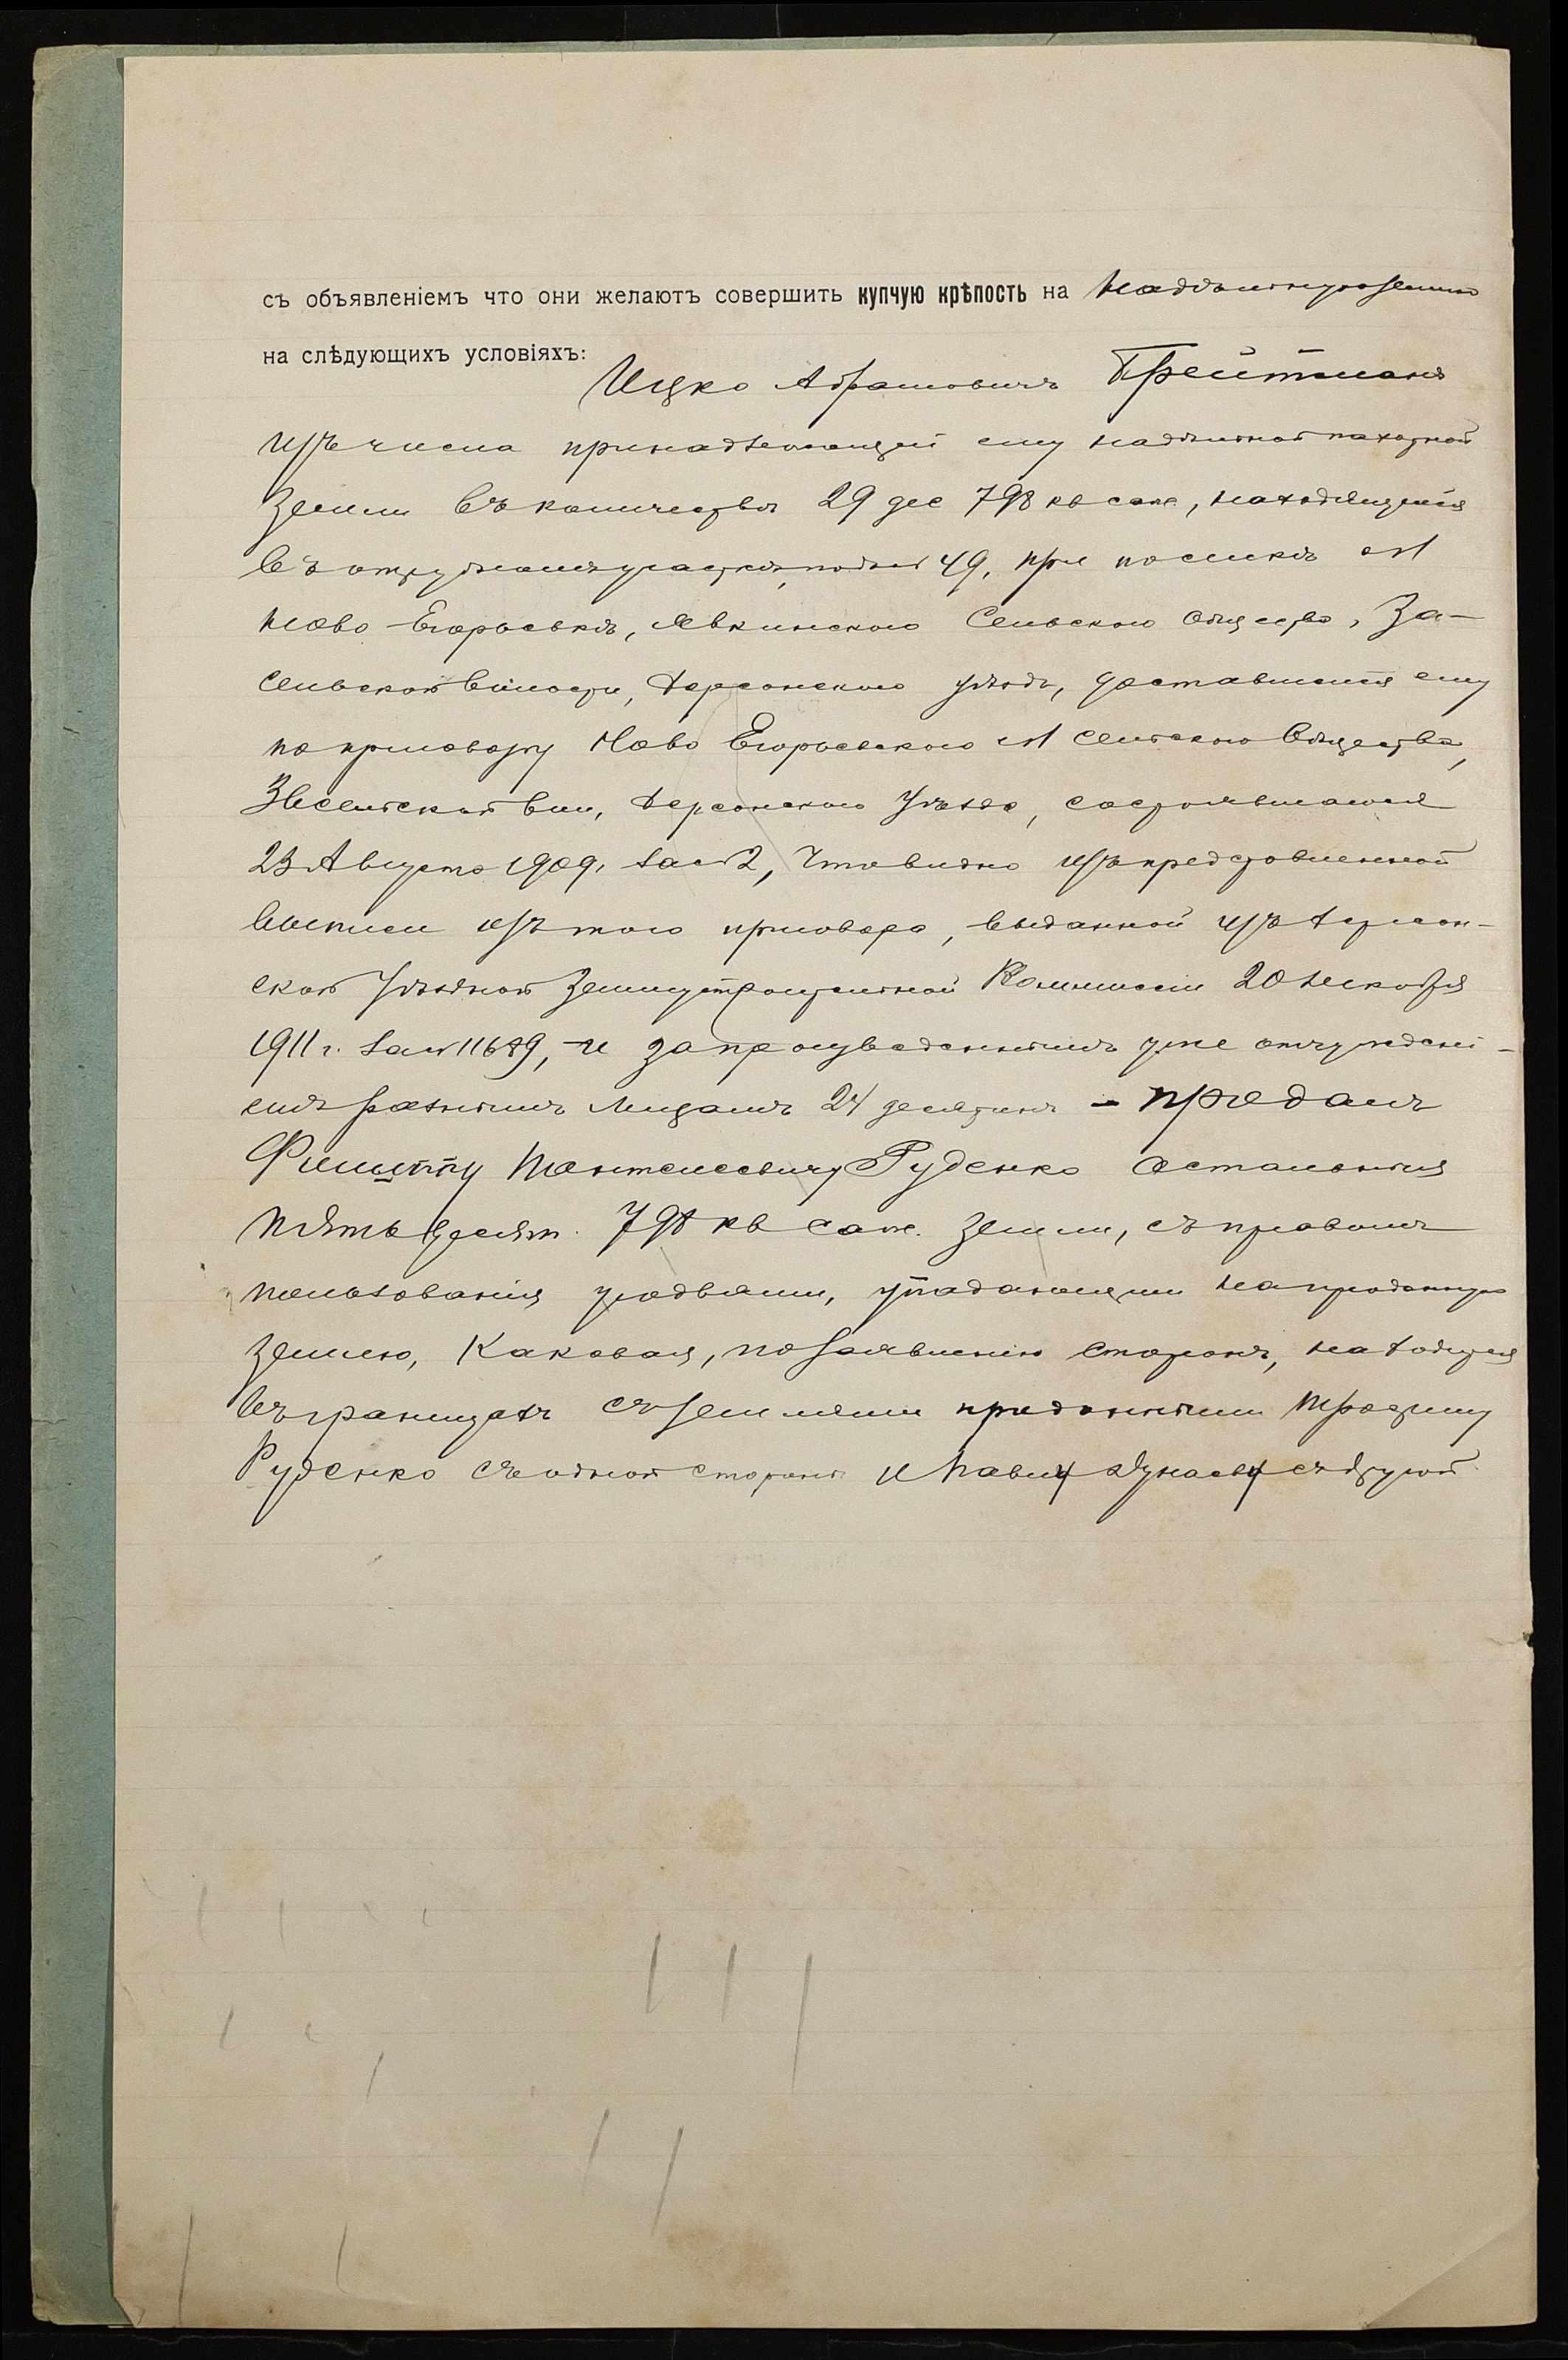 съ объявленіемъ что они желаютъ совершить купчую крѣпость на надѣльную землю
на слѣдующихъ условіяхъ:
Ицко Абрамовичъ Брейтманъ
изъ числа принадлежащей ему надѣльной пахотной
земли въ количествѣ 29 дес 798 кв саж, находящейся
въ отрубномъ участкѣ, подъ № 49, при поселкѣ №1
Ново-Егорьевкѣ, Явкинского Сельского Общества, За-
сельской волости, Херсонского уѣзда, доставшейся ему
по приговору Ново Егорьевского №1 сельского Общества,
Засельской вол, Херсонского Уѣзда, состоявшагося
23 Августа 1909, за №2, что видно изъ представленной
выписи изъ того приговора, выданной изъ Херсон-
ской Уѣздной Землеустроительной Коммиссіи 20 Декабря
1911 г. за № 11689, и за произведеннымъ уже отчужденi-
емъ разнымъ лицамъ 24 десятинъ - продалъ
Филиппу Пантелеевичу Руденко остальныя
пять десят. 798 кв саж. земли, съ правомъ
пользованія угодьями, упадающими на проданную
землю, каковая, по заявленію сторонъ, находится
въ границахъ съ землями проданными Трофиму
Руденко съ одной стороны и Павлу Дунаеву съ другой